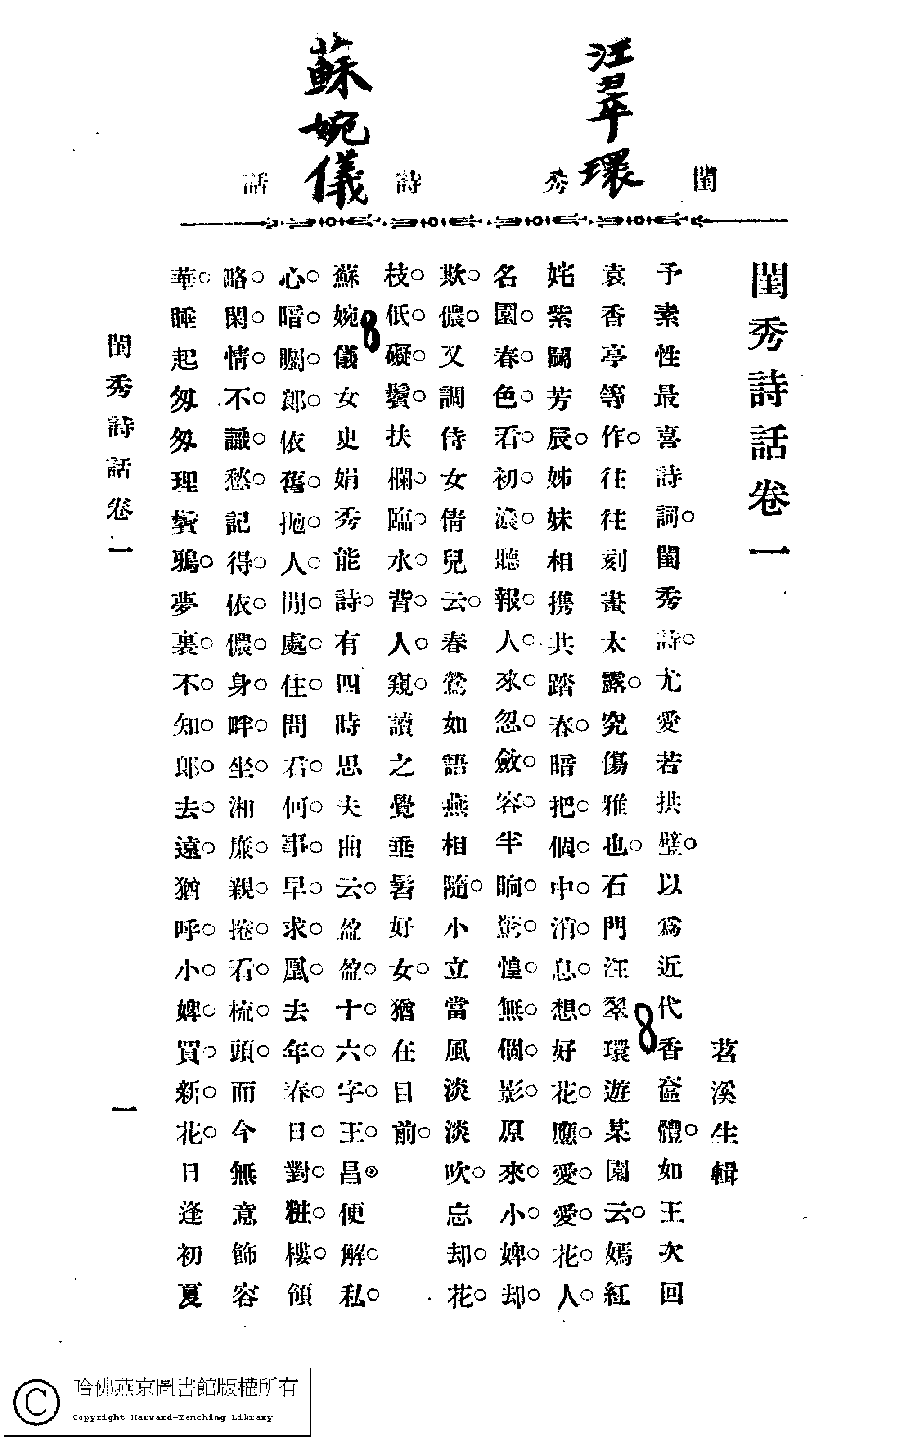 汪翠環
蘇婉儀
閨秀詩話
閨秀詩話卷一
苕溪生輯
予素性最喜詩詞○閨秀詩○尤愛若拱璧○以爲近代香奩體○如王次回
袁香亭等作○往往刻畫太露○究傷雅也○石門汪翠環遊某園云○嫣紅
姹紫鬬芳辰○姊妹相携共踏春○暗把個○中○消○息○想○好花○應○愛○愛○花○人○
名園○春○色○看○初○濃○聽報○人○來○忽○斂○容○半晌○驚○惶○無○個○影○原來○小○婢○却○
欺○儂○又調侍女倩兒云○春鶯如語燕相隨○小立當風淡淡吹○忘却○花○
枝○低○礙○鬢○扶欄○臨○水○背○人○窺○讀之覺垂髫好女○猶在目前○
蘇婉儀女史娟秀能詩○有四時思夫曲云○盈盈○十○六○字○王○昌⊙便解○私○
心○暗○囑○郎○依舊○拋○人○閒○處○住○問君○何○事○早○求○凰○去年○春○日○對○粧○樓○領
略○閑○情○不○識○愁○記得○依○儂○身○畔○坐○湘簾○親○捲○石○梳○頭○而今無意飾容
華○睡起匆匆理鬢鴉○夢裏○不○知○郎○去○遠○猶呼○小○婢○買○新○花○日逢初夏
8
8
閨秀詩話卷一
一
哈佛燕京圖書館版權所有
Copyright Harvard-Yenching Library